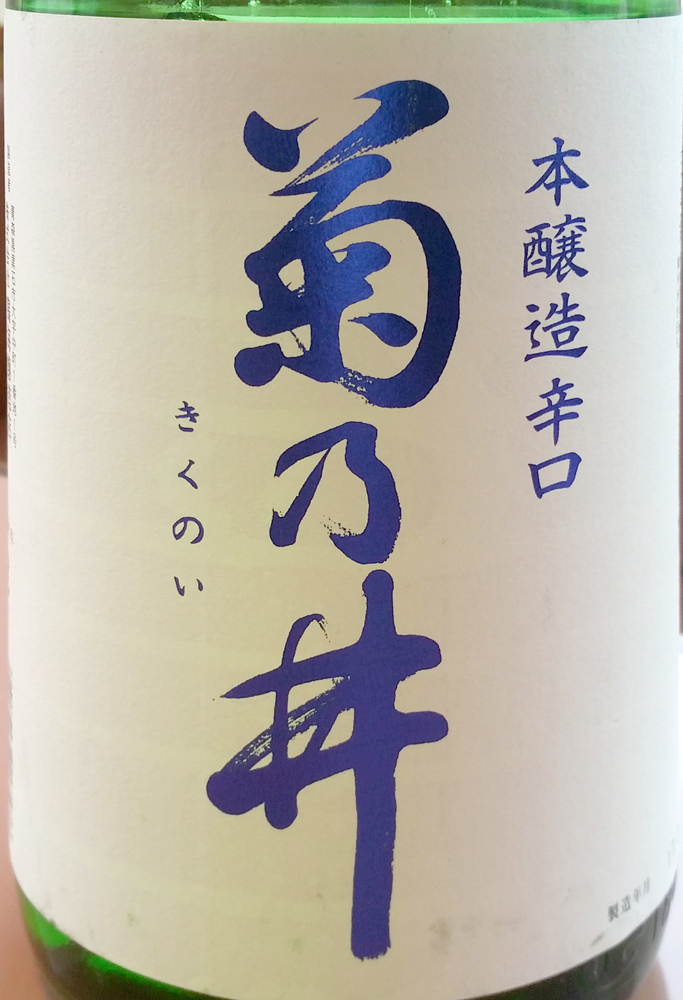 本醸造辛口
菊乃井
きくのい
製造年月